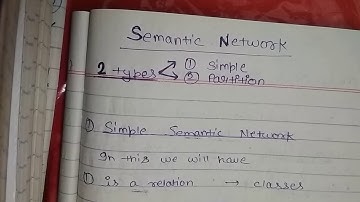 Semantic Network
2 types
① Simple
② Partition
① Simple Semantic Network
In this we will have
① is a relation → classes